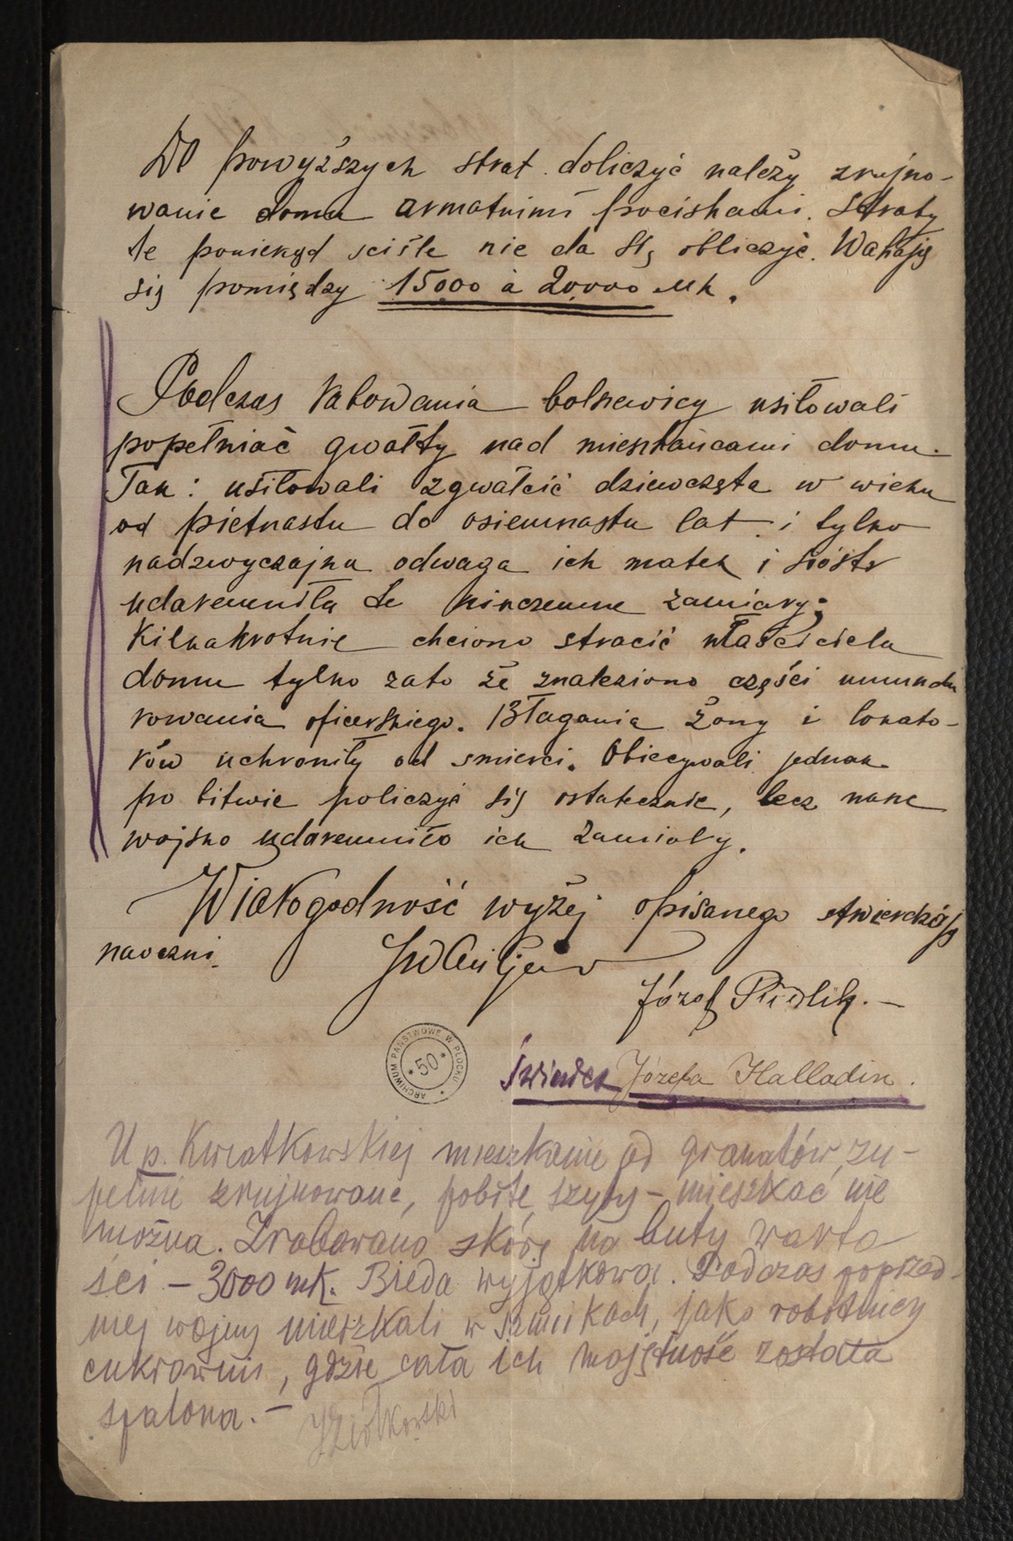 Do powyższych strat doliczyć należy zrujno-
wanie domu armatnimi pociskami. Straty
te poniekąd sciśle nie da się obliczyć. Wahają
się pomiędzy 15000 à 20,000 Mk.
Podczas rabowania bolszewicy usiłowali
popełniać gwałty nad mieszkańcami domu.
Tak: usiłowali zgwałcić dziewczęta w wieku
od piętnastu do osiemnastu lat i tylko
nadzwyczajna odwaga ich matek i sióstr
udaremniła te nikczemne zamiary;
Kilkakrotnie chciano stracić właściciela
domu tylko zato że znaleziono części umundu
rowania oficerskiego. Błagania żony i lokato-
rów uchroniły od smierci. Obiecywali jednak
po bitwie policzyć się ostatecznie, lecz nasze
wojsko udaremniło ich zamiary.
Wiarogodność wyżej opisanego stwierdzają
naoczni
Józef Pudlik. —
Świadek Józefa Halladin.
ARCHIWUM PAŃSTWOWE W PŁOCKU
* 50 *
U p. Kwiatkowskiej mieszkanie od granatów zu-
pełnie zrujnowane, pobite szyby – mieszkać nie
można. Zrabowano skórę na buty warto
ści – 3000 mk. Bieda wyjątkowa. Podczas poprzed-
niej wojny mieszkali w kach, jako robotnicy
cukrowni, gdzie cała ich majętność została
spalona. –
Ziółkowski